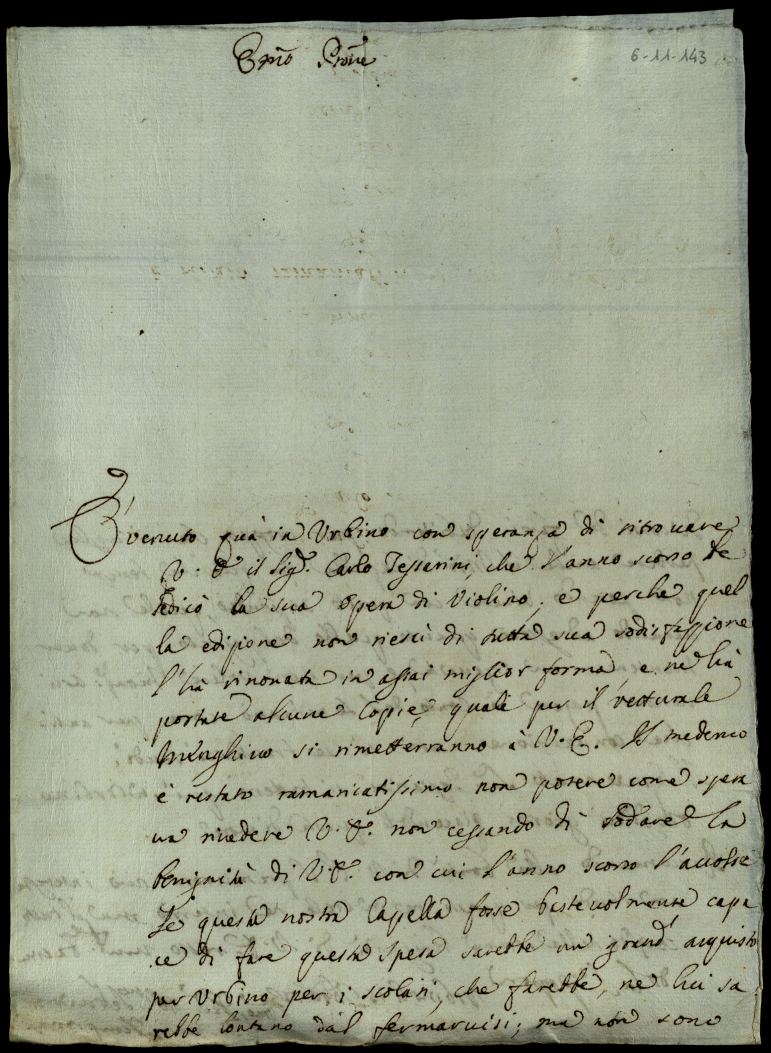 Emo Prone
6-11-143
É venuto quà in Urbino con speranza di ritrovare
V. E. il Sigr. Carlo Tessarini, che l'anno scorso le
dedicò la sua opera di Violino; e perche quel
la edizione non riescì di tutta sua sodisfazzione
l'hà rinovata in assai miglior forma, e ne hà
portate alcune Copie, quali per il vetturale
Menghino si rimetterranno à V. E. Il medemo
è restato ramaricatissimo non potere come spera
va rivedere V. E. non cessando di lodare la
benignità di V. E. con cui l'anno scorso l'accolse
Se questa nostra Capella fosse bastevolmente capa
ce di fare questa spesa sarebbe un grand' acquisto
per Urbino per i scolari, che farebbe, ne lui sa
rebbe lontano dal fermarvisi; ma non sono